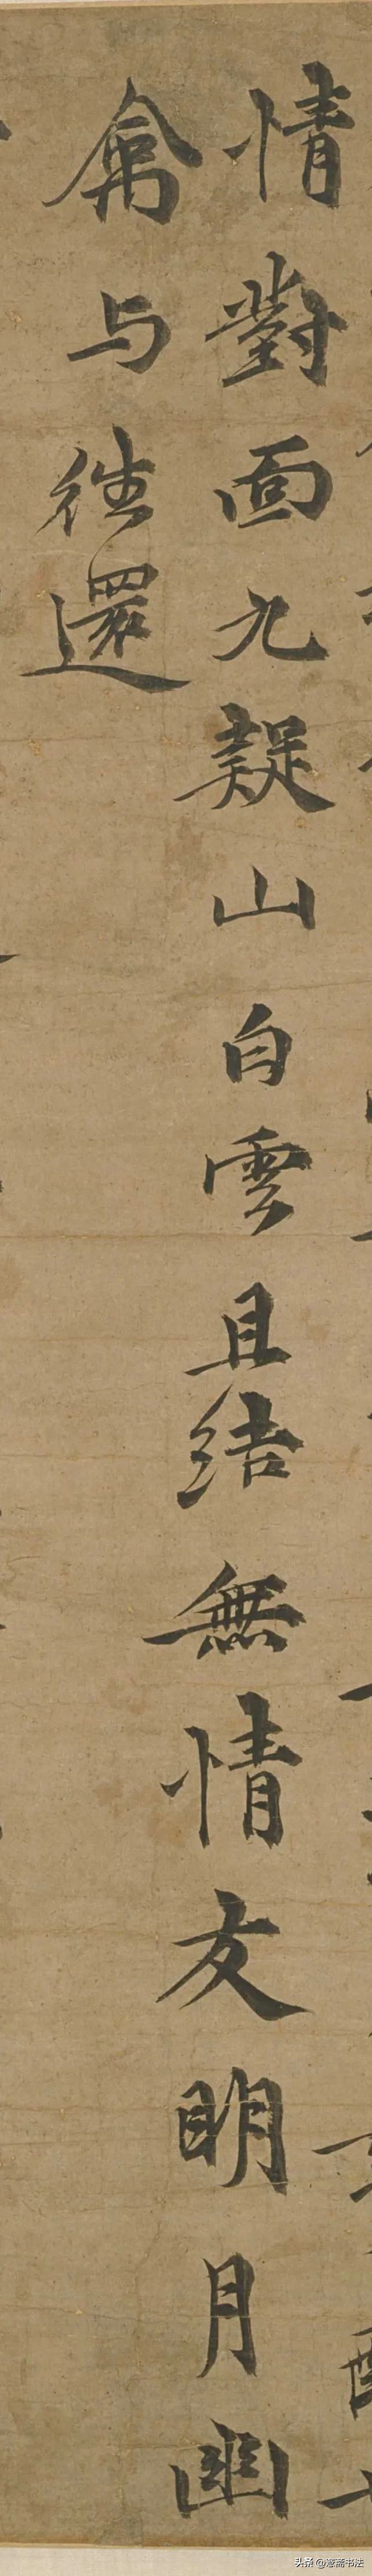 情對面九疑山白雲且結無情友明月幽
禽与往還
头条 @意斋书法